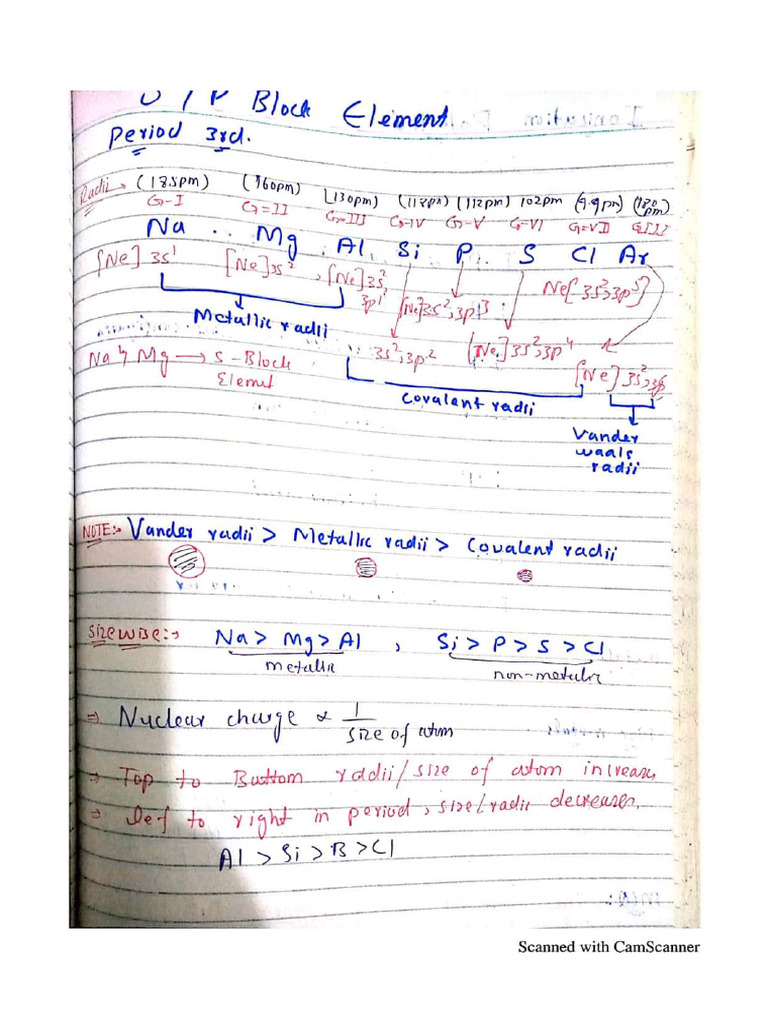 S/P Block Element
Period 3rd.
Radii → (185pm) (160pm) (130pm) (118pm) (112pm) 102pm (99pm) (180pm)
G-I G=II G=III G-IV G-V G-VI G=VII
Na .. Mg Al Si P S Cl Ar
[Ne] 3s¹ [Ne]3s², [Ne]3s², 3p¹ [Ne]3s²,3p³ Ne[3s²,3p⁵]
Metallic radii 3s²,3p² [Ne]3s²,3p⁴
Na Mg → S-Block [Ne]3s²,3p
Elemnt
Covalent radii
Vander
waals
radii
NOTE:- Vander radii > Metallic radii > Covalent radii
Sizewise:→ Na > Mg > Al , Si > P > S > Cl
metallic non-metalic
⇒ Nuclear charge ∝ 1/size of atom
→ Top to Buttom radii/size of atom increase,
⇒ Lef to right in period, size/radii decreases.
Al > Si > B > Cl
Scanned with CamScanner